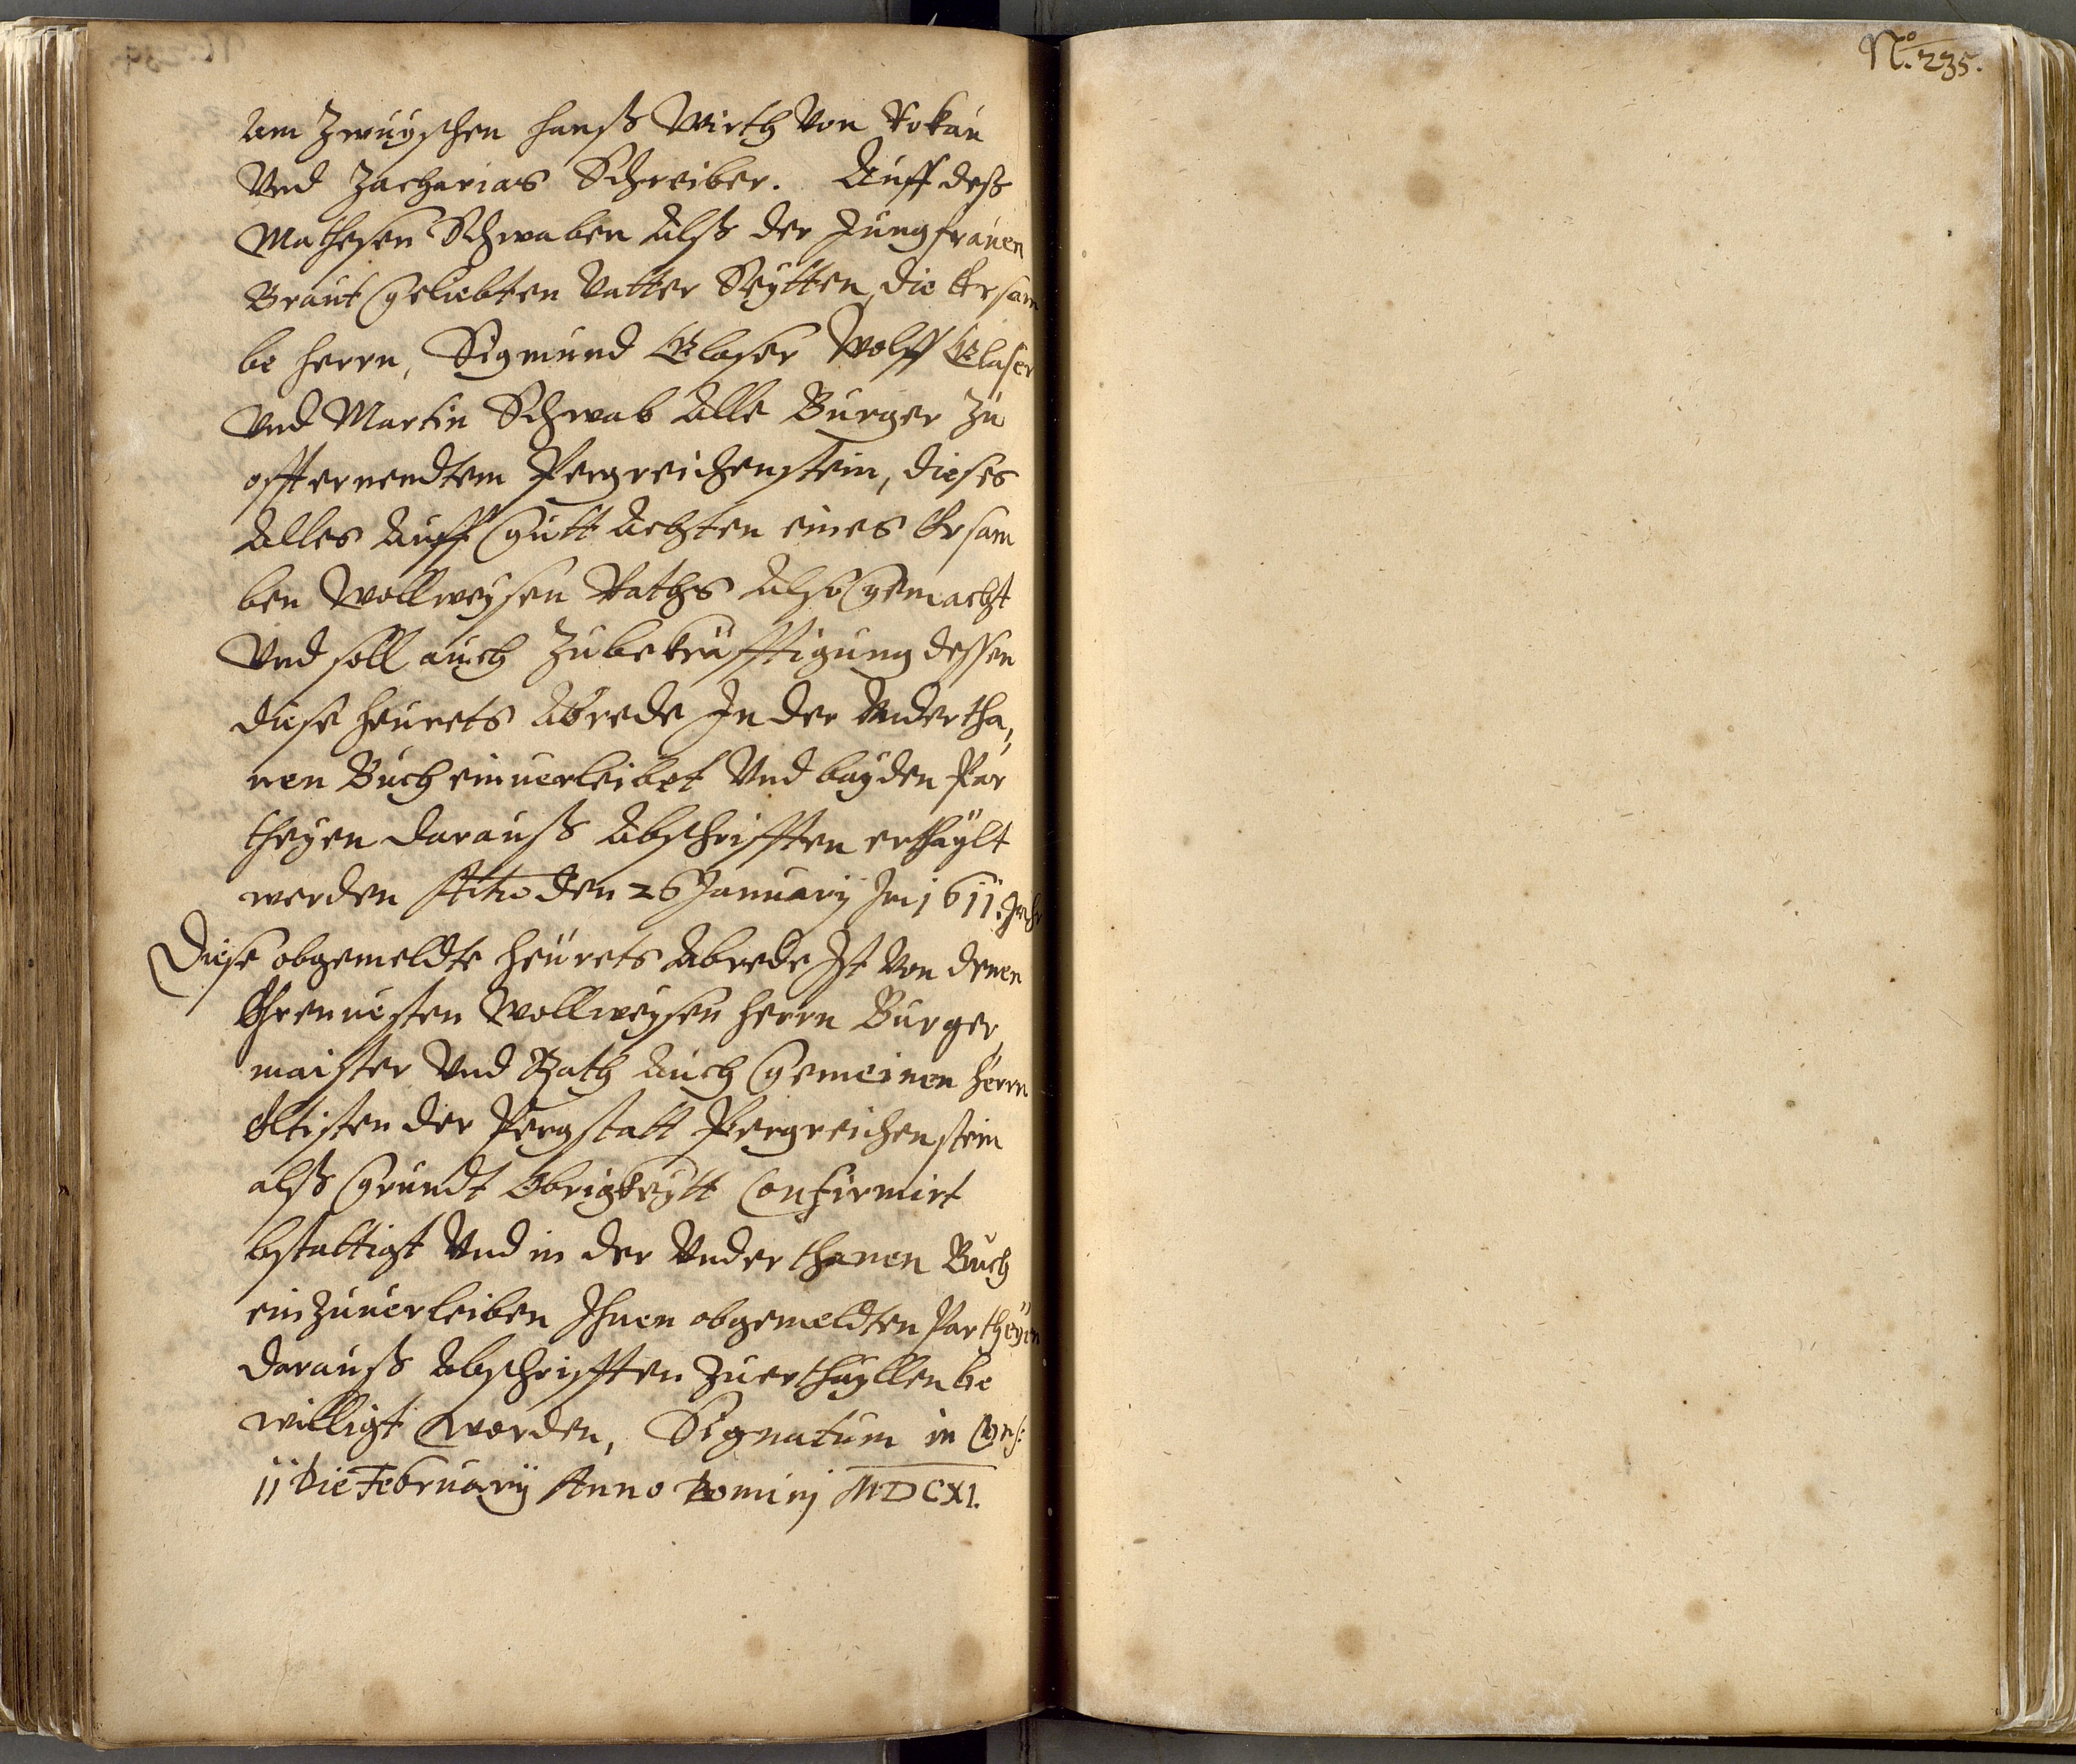 am Zwuyschen Hanß Wirth Von Rokau
Vnd Zacharias Schreiber. Auff deß
Mathesen Schwaben Alß der Jungfrauen
Braut geliebten Vatter Seytten, die Ersam
be Herrn, Sigmund Glaser Wolff Glaser
Vnd Martin Schwab Alle Burger Zu
offternendtem Pergreichenstein, dieses
Alles Auff gutt Achten eines Ersam
ben Wollweysen Raths Also gemacht
Vnd soll auch Zubekräfftigung dessen
diese Heurets Abrede In der Vndertha,
nen Buch einuerleibet Vnd bayden Par
theyen darauß Abschrifften erthaylt
werden Actio den 26 Januarij Im 1611. Jahr
Diese obgemeldte Heurets Abrede Ist Von denen
Ehrenuesten Wollweysen Herrn Burger
maister Vnd Rath Auch gemeinen Herrn
Eltisten der Pergstatt Pergreichenstein
alß Grundt Obrigkeytt Confirmirt
bstattigt Vnd in der Vnderthanen Buch
einzuuerleiben Ihnen obgemeldten Partheyen
darauß Abschrifften Zuerthayllen be
willigt worden, Signatum in Cons:
11 Die Februarij Anno Dominj MDCXI.
No. 235.